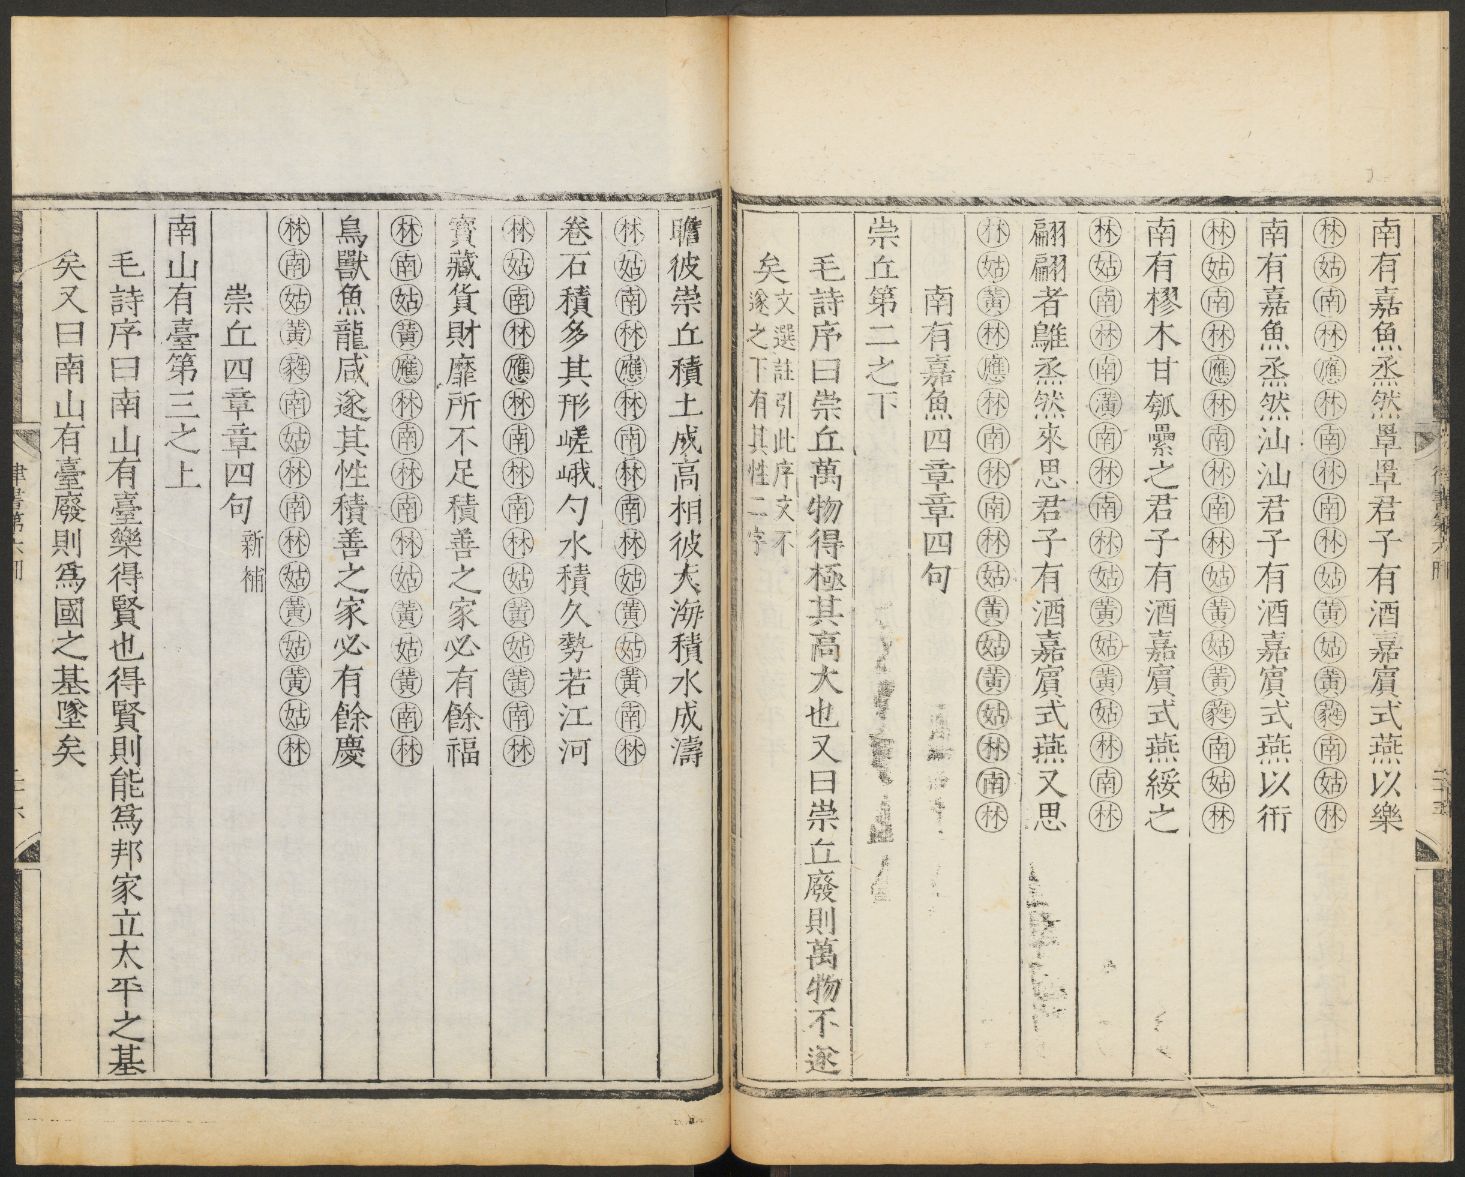 南有嘉魚烝然罩罩君子有酒嘉賓式燕以樂
林姑南林應林南林南林姑黃姑黃蕤南姑林
南有嘉魚烝然汕汕君子有酒嘉賓式燕以衎
林姑南林應林南林南林姑黃姑黃蕤南姑林
南有樛木甘瓠纍之君子有酒嘉賓式燕綏之
林姑南林南潢南林南林姑黃姑黃姑林南林
翩翩者鵻烝然來思君子有酒嘉賓式燕又思
林姑黃林應林南林南林姑黃姑黃姑林南林
南有嘉魚四章章四句
崇丘第二之下
毛詩序曰崇丘萬物得極其高大也又曰崇丘廢則萬物不遂
矣
文選註引此序文不
遂之下有其性二字
瞻彼崇丘積土成高相彼大海積水成濤
林姑南林應林南林南林姑黃姑黃南林
卷石積多其形嵯峨勺水積久勢若江河
林姑南林應林南林南林姑黃姑黃南林
寶藏貨財靡所不足積善之家必有餘福
林南姑黃應林南林南林姑黃姑黃南林
鳥獸魚龍咸遂其性積善之家必有餘慶
林南姑黃蕤南姑林南林姑黃姑黃姑林
崇丘四章章四句新補
南山有臺第三之上
毛詩序曰南山有臺樂得賢也得賢則能為邦家立太平之基
矣又曰南山有臺廢則為國之基墜矣